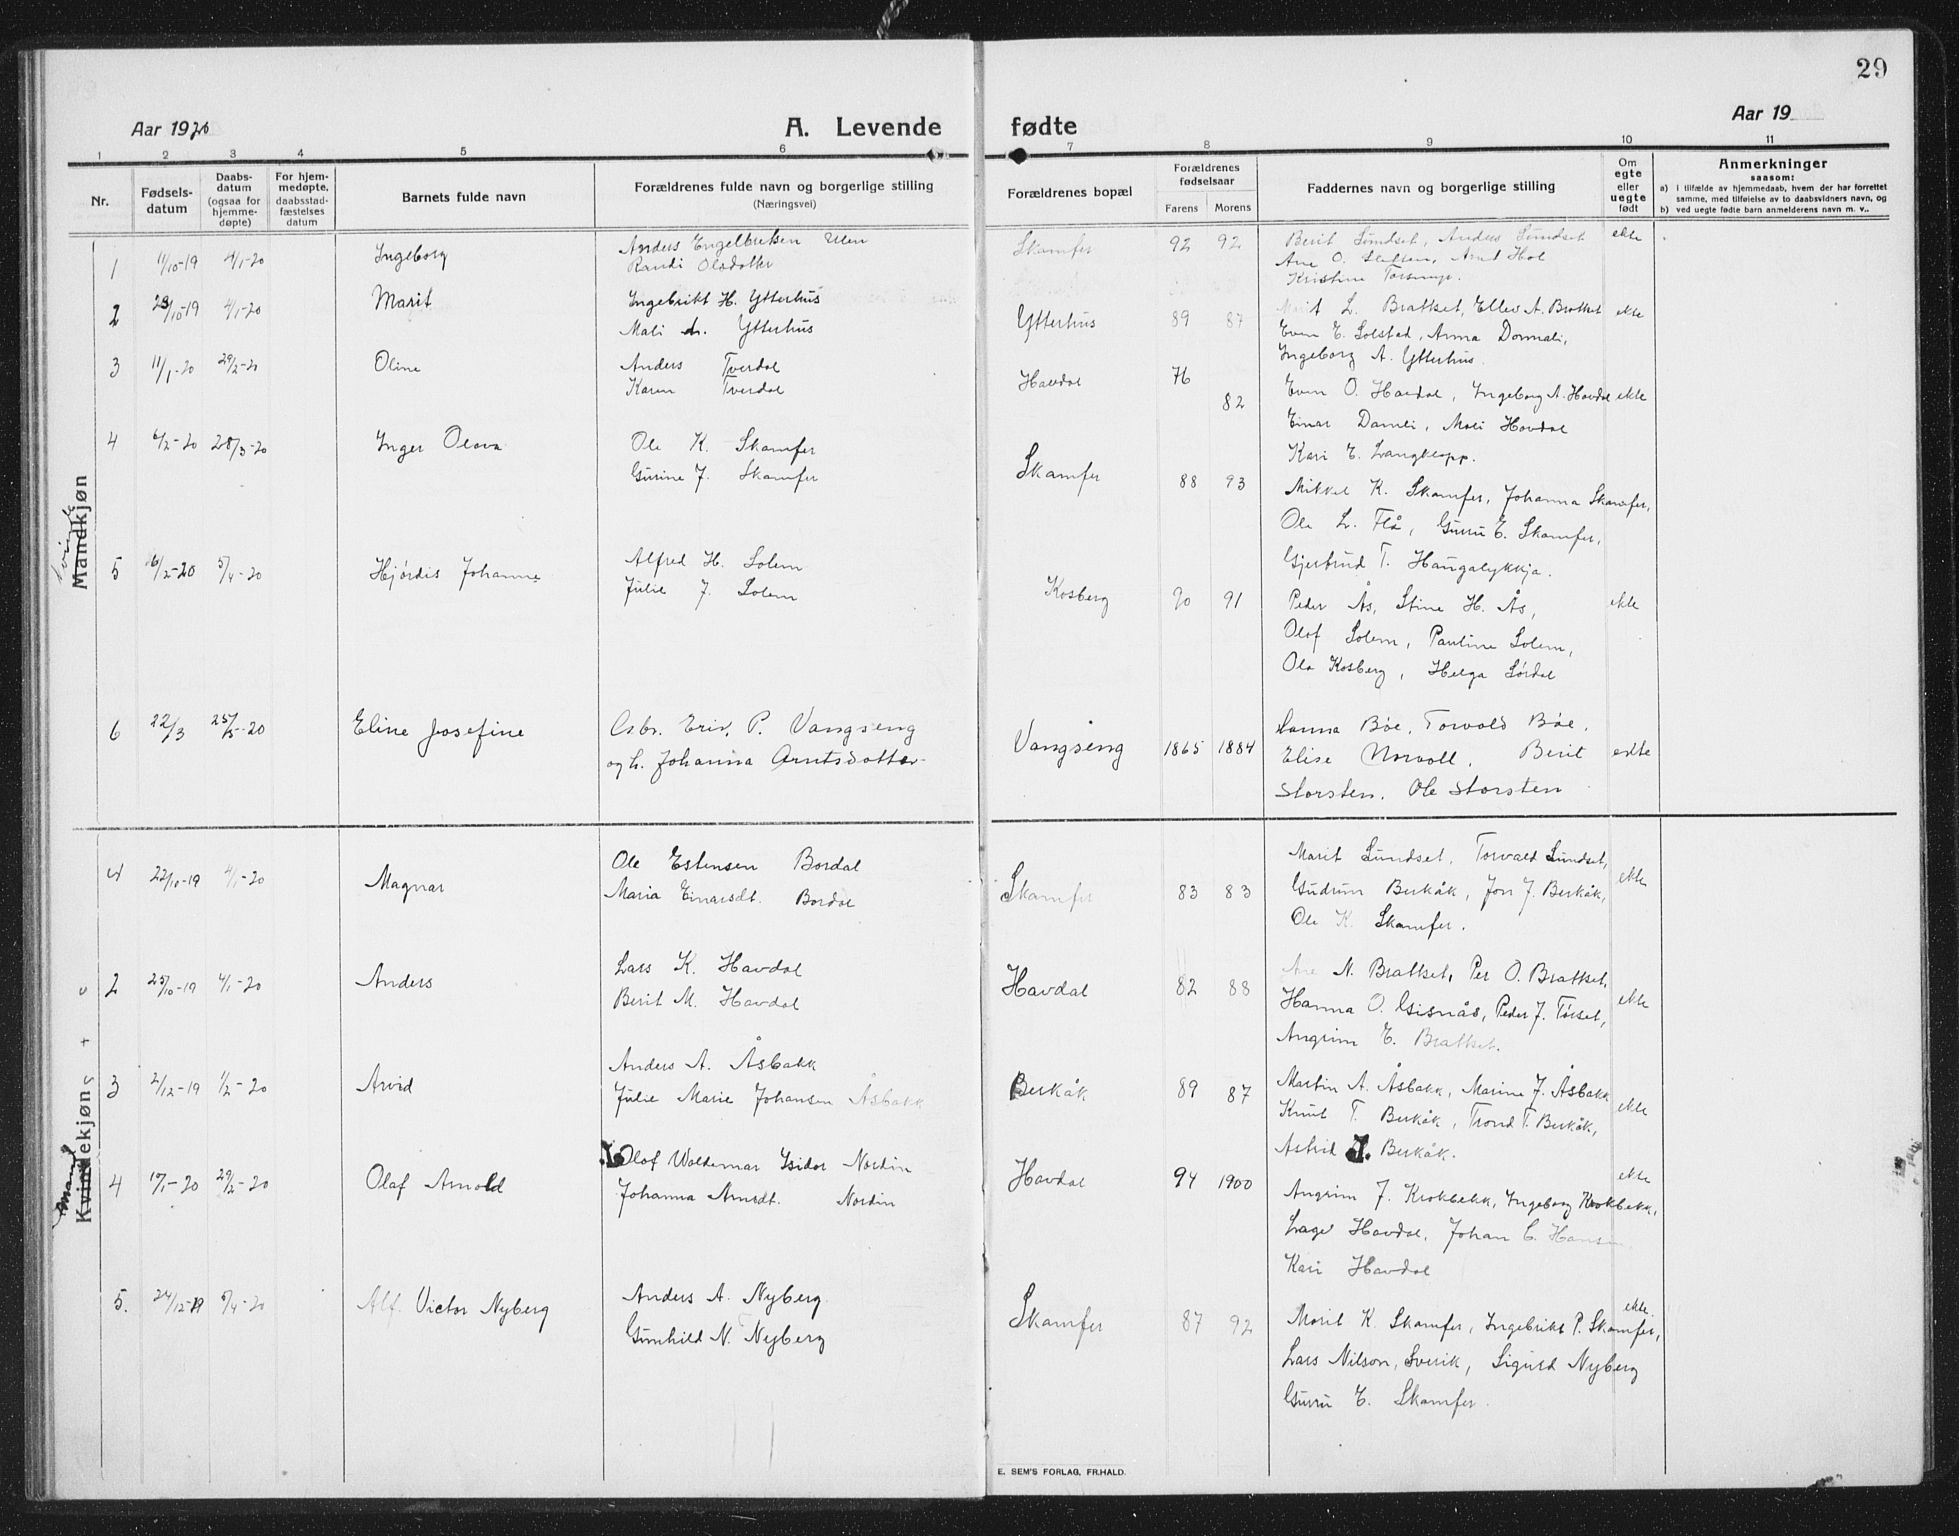 29
Aar 1920
A. Levende fødte
Aar 19
1 2 3 4 5 6 7 8 9 10 11
Nr.
Fødsels-
datum
Daabs-
datum
(ogsaa for
hjemme-
døpte).
For hjem-
medøpte,
daabsstad-
fæstelses
datum
Barnets fulde navn
Forældrenes fulde navn og borgerlige stilling
(Næringsvei)
Forældrenes bopæl
Forældrenes
fødselsaar
Farens Morens
Faddernes navn og borgerlige stilling
Om
egte
eller
uegte
født
Anmerkninger
saasom:
a) i tilfælde av hjemmedaab, hvem der har forrettet
samme, med tilføielse av to daabsvidners navn, og
b) ved uegte fødte barn anmelderens navn m. v..
Mandkjøn
Kvinde
1 11/10-19 4/1-20 Ingeborg
Anders Engelbretsen Ulen
Randi Olsdatter
Skamfer 92 92
Berit Sundset, Anders Sundset
Ane O. Sletten, Arnt Hol
Kristine
ekte
2 23/10-19 4/1-20 Marit
Ingebrikt H. Ytterhus
Mali Ytterhus
Ytterhus 89 87
Marit L. Brattset, Ellev A. Brattset
Even E. Solstad, Anna Donnali,
Ingeborg A. Ytterhus.
ekte
3 11/1-20 29/2-20 Oline
Anders Tverdal
Karen Tverdal
Havdal 76 82
Even O. Havdal, Ingeborg A. Havdal
Einar Damli, Mali Havdal
Kari E. Langklopp.
ekte
4 6/2-20 28/3-20 Inger Olava
Ole K. Skamfer
Gurine J. Skamfer
Skamfer 88 93
Mikkel K. Skamfer, Johanna Skamfer,
Ole L. Flå, Guru E. Skamfer,
Gjertrud T. Haugalykkja.
5 16/2-20 5/4-20 Hjørdis Johanne
Alfred H. Solem
Julie J. Solem
Kosberg 90 91
Peder Ås, Stine H. Ås,
Olaf Solem, Pauline Solem,
Ola Kosberg, Helga Sørdal
ekte
6 22/3 25/5-20 Eline Josefine
Gsbr. Eriv. P. Vangseng
og h. Johanna Arntsdotter
Vangseng 1865 1884
Hanna Bøe, Torvald Bøe.
Elise Norvoll. Berit
Storsten. Ole Storsten
edte
Kvindekjøn
Mand
4 22/10-19 4/1-20 Magnar
Ole Estensen Bordal
Maria Einarsdt. Bordal
Skamfer 83 83
Marit Sundset, Torvald Sundset,
Gudrun Berkåk, Jon J. Berkåk,
Ole K. Skamfer.
ekte
2 25/10-19 4/1-20 Anders
Lars K. Havdal
Berit M. Havdal
Havdal 82 88
Ane N. Brattset, Per O. Brattset,
Hanna O. Gisnås, Peder J. Tørset,
Angrim E. Brattset.
ekte
3 2/12-19 1/2-20 Arvid
Anders A. Åsbakk
Julie Marie Johansen Åsbakk
Berkåk 89 87
Martin A. Åsbakk, Marine J. Åsbakk
Knut T. Berkåk, Trond T. Berkåk,
Astrid J. Berkåk.
ekte
4 17/1-20 29/2-20 Olaf Arnold
Olaf Woldemar Isidor Nordin
Johanna Arnsdt. Nordin
Havdal 94 1900
Angrim J. Krokbekk, Ingeborg Krokbekk,
Lage Havdal, Johan C. Hansen
Kari Havdal
ekte
5. 24/12-19 5/4-20 Alf Victor Nyberg
Anders A. Nyberg
Gunhild N. Nyberg
Skamfer 87 92
Marit K. Skamfer, Ingebrikt P. Skamfer,
Lars Nilson, Sverik, Sigurd Nyberg
Guru E. Skamfer.
ekte.
E. SEM'S FORLAG, FR.HALD.